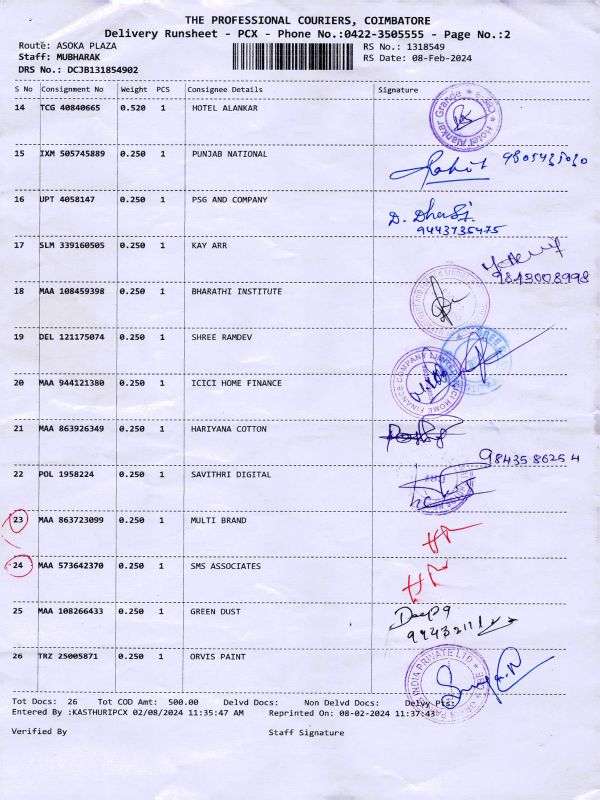 THE PROFESSIONAL COURIERS, COIMBATORE
Delivery Runsheet - PCX - Phone No.:0422-3505555 - Page No.:2
Route: ASOKA PLAZA RS No.: 1318549
Staff: MUBHARAK RS Date: 08-Feb-2024
DRS No.: DCJB131854902
S No Consignment No Weight PCS Consignee Details Signature
14 TCG 40840665 0.520 1 HOTEL ALANKAR
15 IXM 505745889 0.250 1 PUNJAB NATIONAL
16 UPT 4058147 0.250 1 PSG AND COMPANY
9443735475
17 SLM 339160505 0.250 1 KAY ARR
9843008998
18 MAA 108459398 0.250 1 BHARATHI INSTITUTE
19 DEL 121175074 0.250 1 SHREE RAMDEV
20 MAA 944121380 0.250 1 ICICI HOME FINANCE
21 MAA 863926349 0.250 1 HARIYANA COTTON
98435 86254
22 POL 1958224 0.250 1 SAVITHRI DIGITAL
23 MAA 863723099 0.250 1 MULTI BRAND
24 MAA 573642370 0.250 1 SMS ASSOCIATES
25 MAA 108266433 0.250 1 GREEN DUST
26 TRZ 25005871 0.250 1 ORVIS PAINT
Tot Docs: 26 Tot COD Amt: 500.00 Delvd Docs: Non Delvd Docs: Delvy Pts:
Entered By :KASTHURIPCX 02/08/2024 11:35:47 AM Reprinted On : 08-02-2024 11:37:43
Verified By Staff Signature